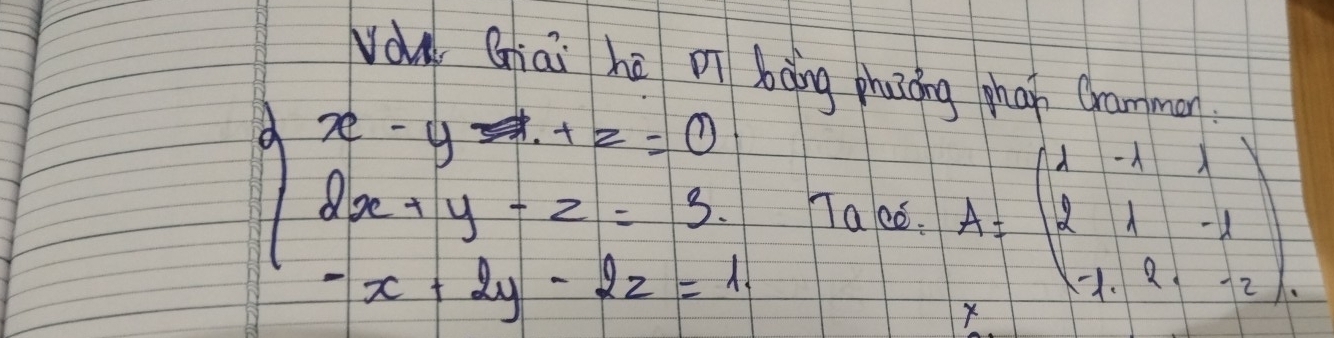 Vd1: Giải hệ PT bằng phương pháp Crammer.
x - y + z = 0
2x + y - z = 3. Ta có: A = (1 -1 1
2 1 -1
-1. 2. -2).
-x + 2y - 2z = 1.